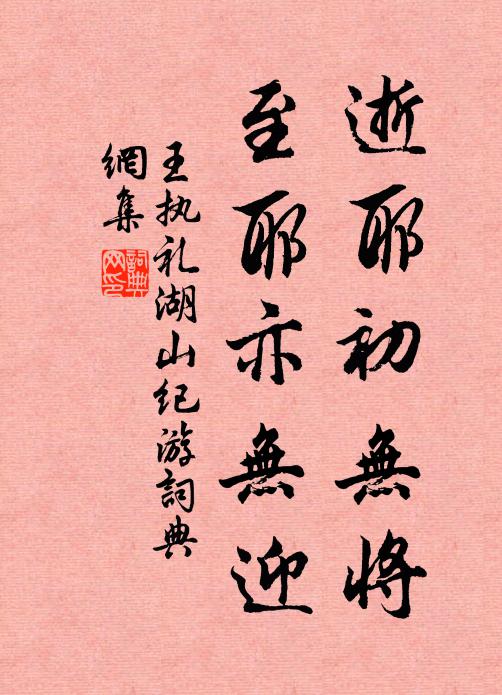 逝耶初無將
至耶亦無迎
王执礼湖山纪游詞典
網集
詞典
网印